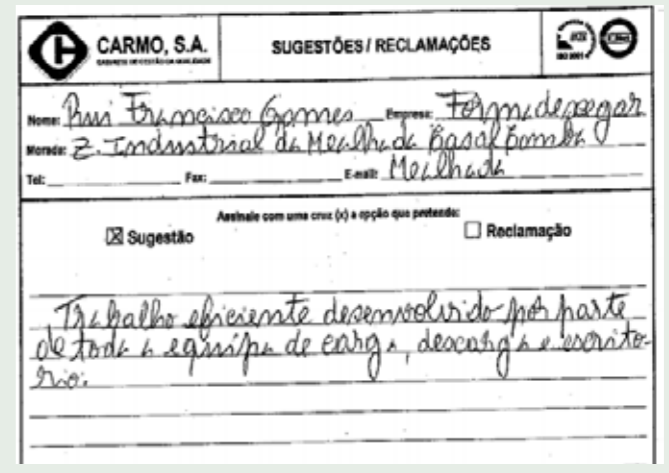 CARMO, S.A.
GABINETE DE GESTÃO DA QUALIDADE
SUGESTÕES / RECLAMAÇÕES
ISO 9001
Nome: Rui Francisco Gomes Empresa:
Morada: Z. Industrial da Mealhada
Tel: Fax: E-mail: Mealhada
Assinale com uma cruz (x) a opção que pretende:
☒ Sugestão ☐ Reclamação
Trabalho eficiente desenvolvido por parte
de toda a equipa de carga, descarga e escrito-
rio.